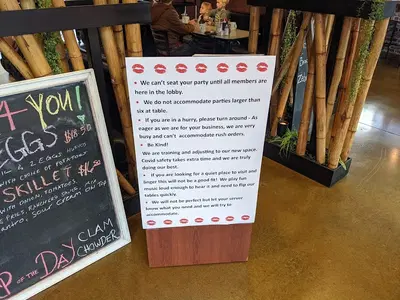 4 YOU!
EGGS $18.50
SKILLET $16.50
SOUR CREAM ON TOP
OF THE DAY
CLAM
CHOWDER
We can't seat your party until all members are
here in the lobby.
We do not accommodate parties larger than
six at table.
If you are in a hurry, please turn around - As
eager as we are for your business, we are very
busy and can't accommodate rush orders.
Be Kind!
We are training and adjusting to our new space.
Covid safety takes extra time and we are truly
doing our best.
If you are looking for a quiet place to visit and
linger this will not be a good fit! We play fun
music loud enough to hear it and need to flip our
tables quickly.
We will not be perfect but let your server
know what you need and we will try to
accommodate.